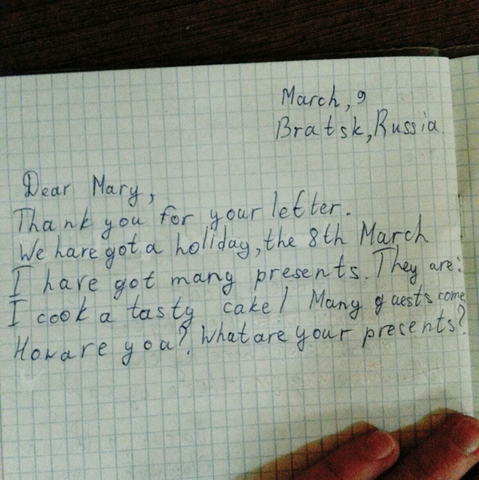 March, 9
Bratsk, Russia
Dear Mary,
Thank you for your letter.
We have got a holiday, the 8th March
I have got many presents. They are:
I cook a tasty cake! Many guests come
How are you? What are your precents?